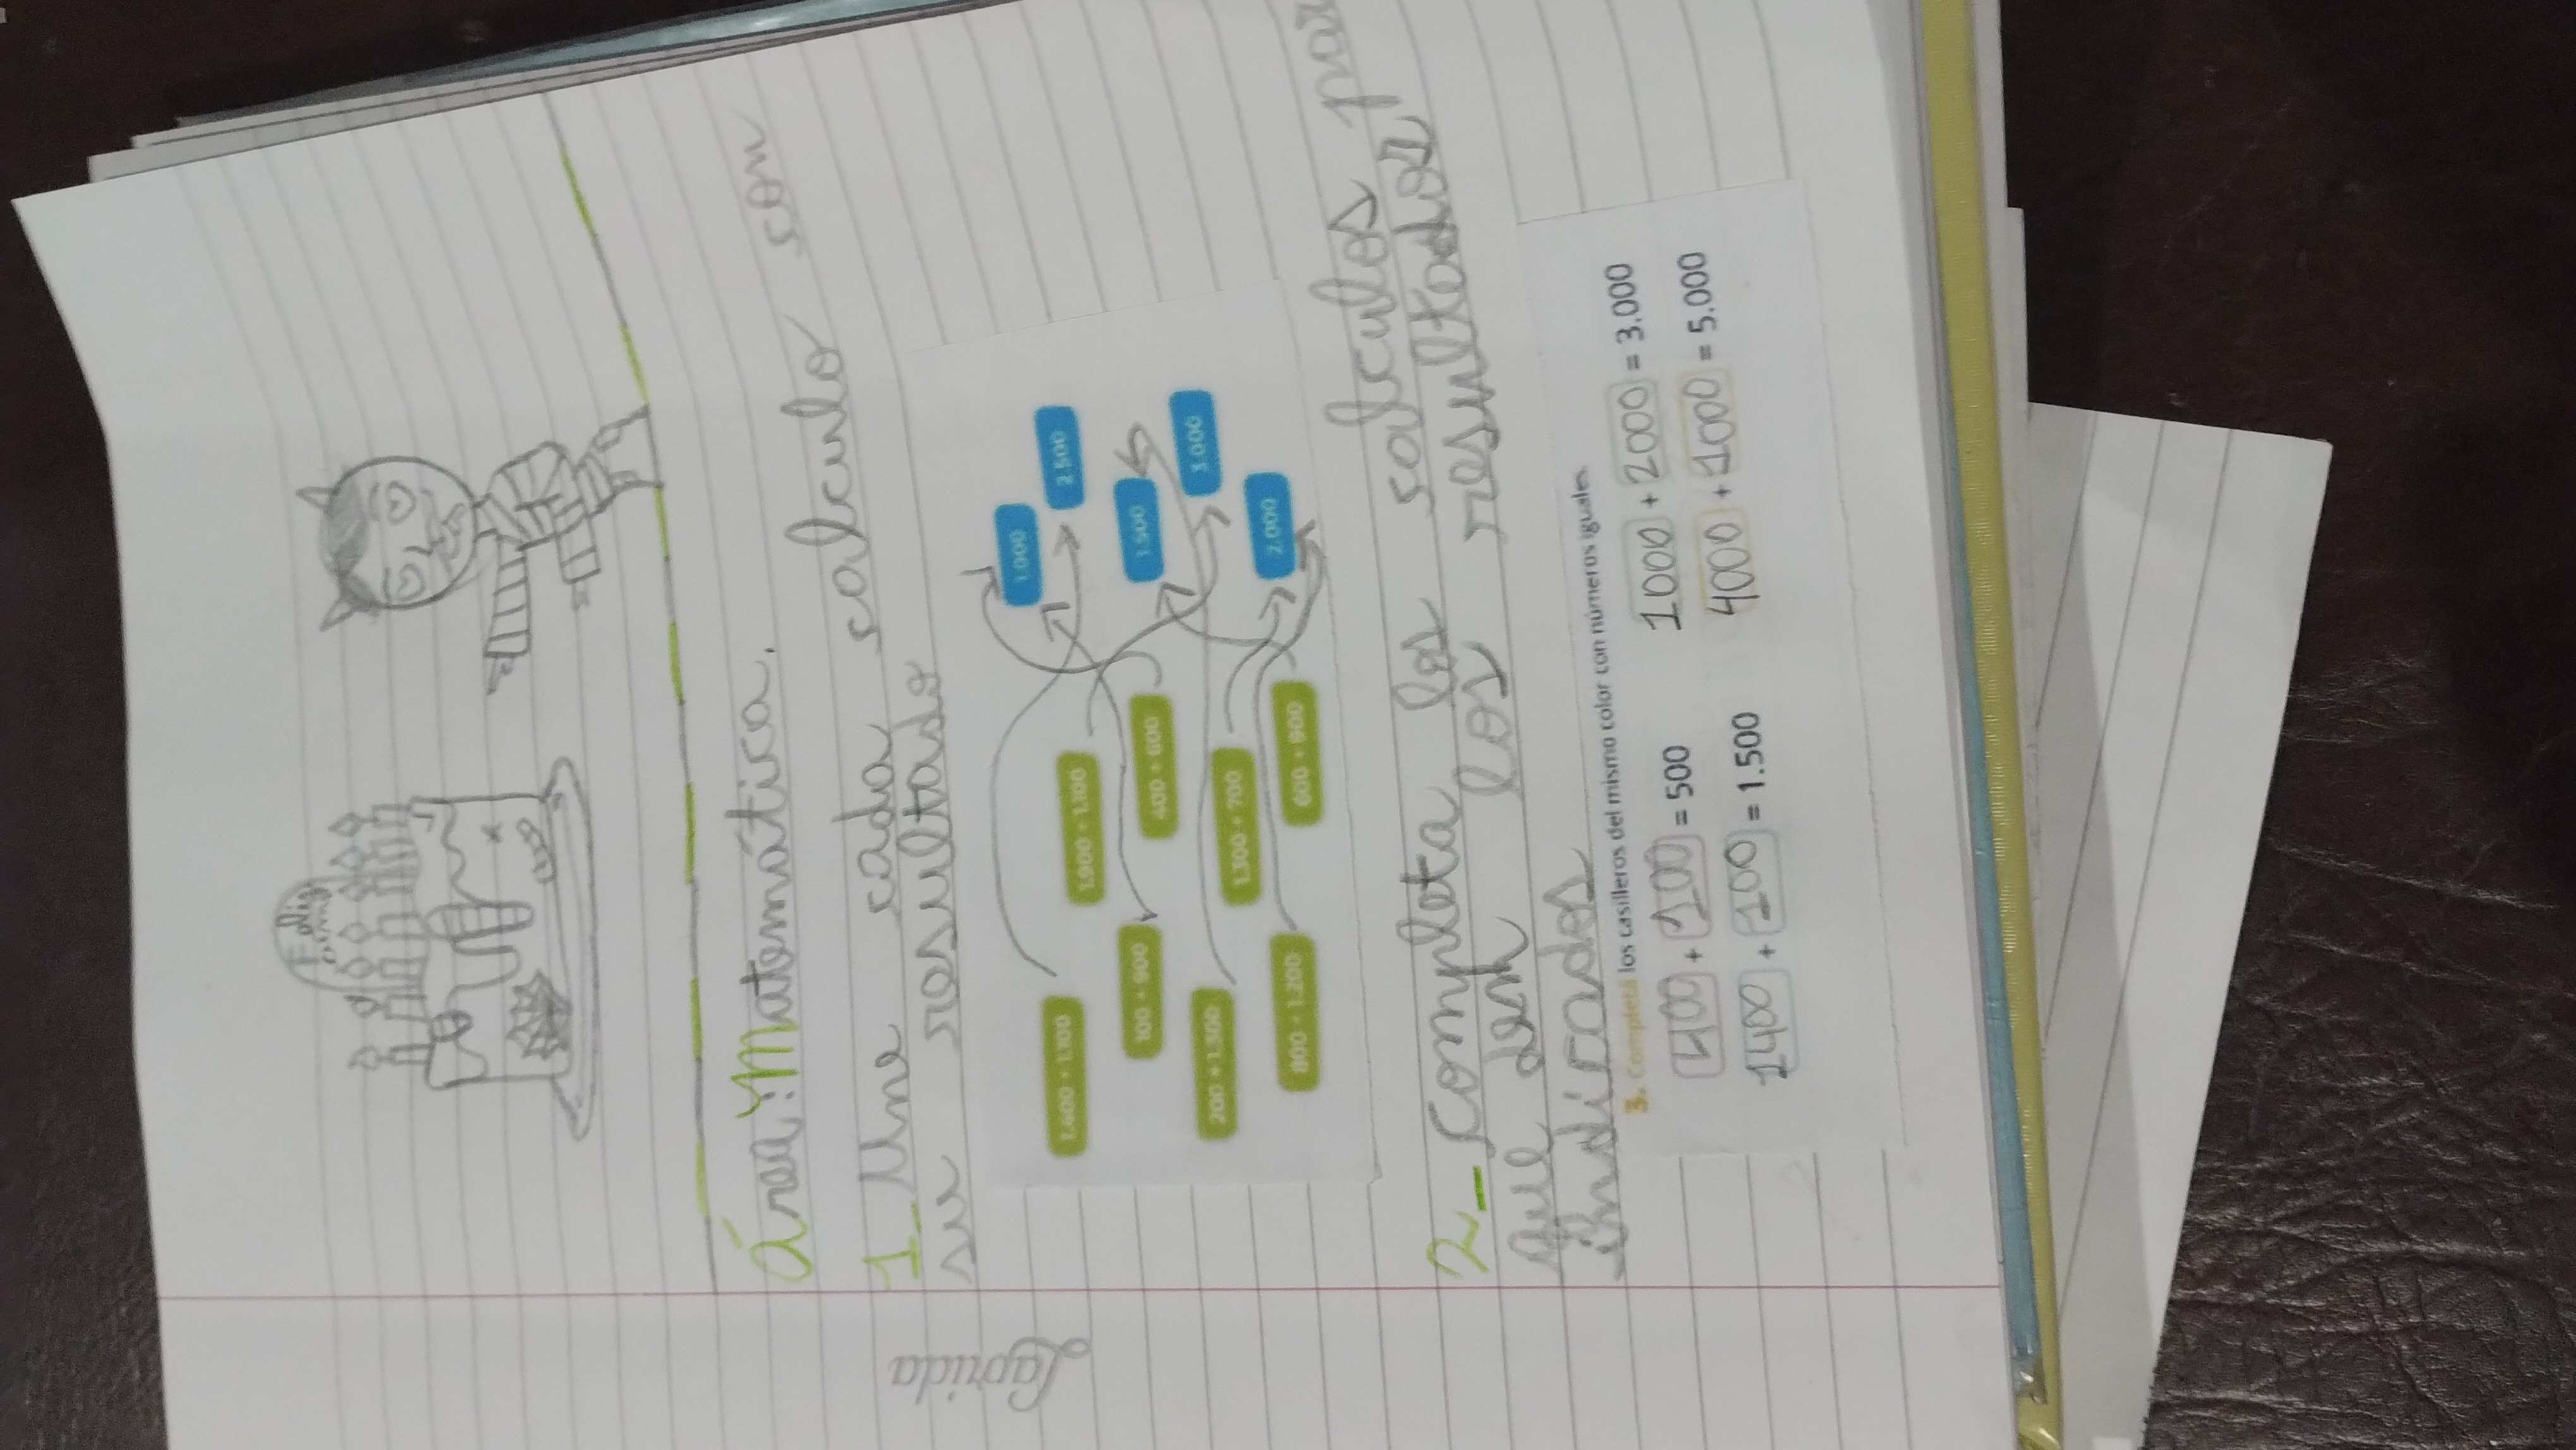 Área: Matemática.
1_ Une cada calculo con
su resultado
1.400 + 1.100
1.900 + 1.100
1.000
2.500
100 + 900
400 + 600
1.500
200 + 1.300
1.300 + 700
3.000
800 + 1.200
600 + 900
2.000
2_ Completa los calculos para
que den los resultados
indicados
3. Completá los casilleros del mismo color con números iguales.
400 + 100 = 500 1000 + 2000 = 3.000
1400 + 100 = 1.500 4000 + 1000 = 5.000
Laprida